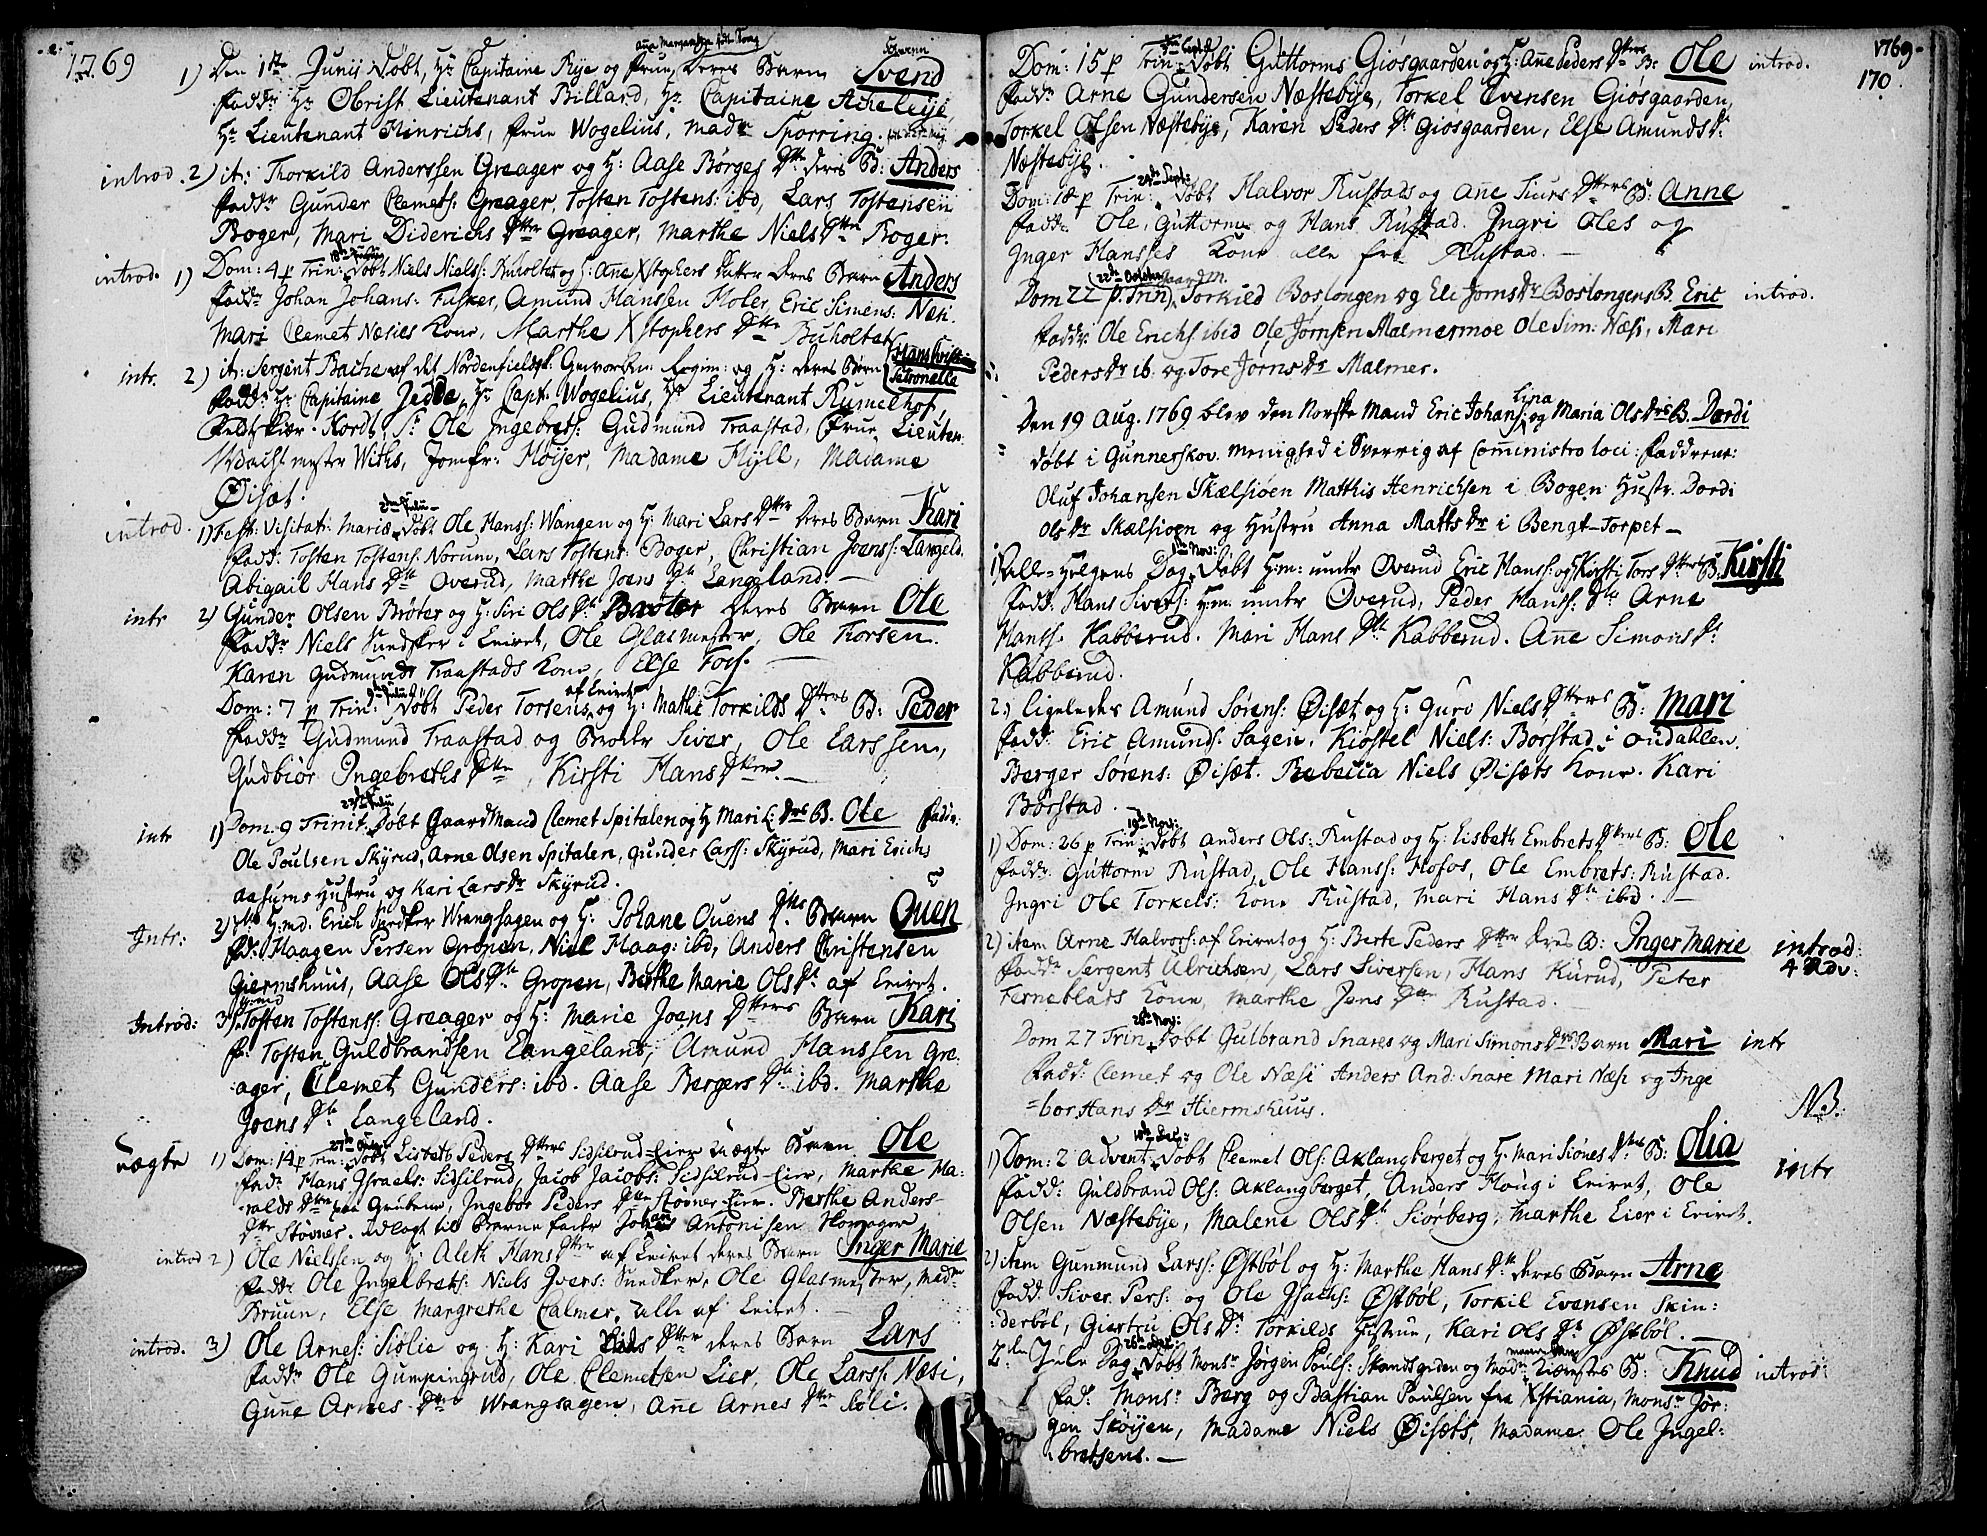 1769
Den 1ste Junii døbt, Hr Capitaine Rye og Frue, deres Barn Svend
Fadd: Hr Obrist Lieutenant Billard, Hr Capitaine
Hr Lieutenant Hinrichs, Frue Wogelius, Mad: Sporring.
introd. 2) it: Thorkild Anderssen Greager og H: Aase Børges Dtter deres B: Anders
Fadd: Gunder Clemets: Greager, Tosten Tostens: ibd, Lars Tostensen
Boger, Mari Diderichs Dtter Greager, Marthe Niels Dtter Boger.
introd. 1) Dom: 4 p Trin: døbt Niels Niels: Buholtet og H: Añe Xstophers Datter deres Barn Anders
Fadd: Johan Johans: Fasker, Amund Hanssen Moler, Eric Simens: Næsi.
Mari Clemet Næsies Kone, Marthe Xstophers Dtter Buholtet
intr. 2) it: Sergent Bache af det Nordenfieldske Regim: og H: deres Børn Petronelle
Fadd: Hr Capitaine Jedde, Hr Capt: Wogelius, Hr Lieutenant Rumelhof,
Feldskiær Kordt, Sr Ole Ingebrets: Gudmund Traastad, Frue Lieuten:
Wachtmester Withs, Jomfr: Høyer, Madame Hyll, Madame
Øisæt.
introd. 1) Fest: Visitat: Mariæ døbt Ole Hanss: Wangen og H: Mari Lars Dtter deres Barn Kari
Fadd: Tosten Tostens: Norum, Lars Tostens: Boger, Christian Joenss: Langeld.
Abigail Hans Dtr Overud, Marthe Joens Dtr Langeland. —
intr 2) Gunder Olsen Brøter og H: Siri Ols Dtr Brøter deres Barn Ole
Fadd: Niels Sundsker i Leiret, Ole Glasmester, Ole Thorsen.
Karen Gudmund Traastads Kone, Else Foss. —
Dom: 7 p Trin: døbt Peder Torsens af Leiret og H: Mathe Torkilds Dtters B: Peder
Fadd: Gudmund Traastad og Broder Siver, Ole Larssen,
Gudbiør Ingebreths Dtter, Kirsti Hans Dtter. —
intr 1) Dom: 9 Trinit: døbt Gaardmand Clemet Spitalen og H: Mari L: Dtrs B. Ole Fadd:
Ole Poulsen Skyrud, Arne Olsen Spitalen, Gunder Larss: Skyrud, Mari Erichs
Aasums Hustru og Kari Lars Dr Skyrud.
Intr: 2) Erich Wrangsagen og H: Johane Ouens Dtrs Barn Ouen
Fd: Haagen Persen Gropen, Niel Haag: ibd, Anders Christensen
Giermshuus, Aase Ols Dtr Gropen, Berthe Marie Ols Dtr af Leiret.
Introd: 3) Tosten Tostenss: Greager og H: Marie Joens Dtters Barn Kari
F: Tosten Guldbrandsen Langeland, Amund Hanssen Gre:
ager, Clemet Gunders: ibd. Aase Bergers Dtr ibd. Marthe
Joens Dtr Langeland.
uægte 1) Dom: 14 p Trin: døbt Lisbeth Peders Dtters Sidsilrud-Eier uægte Barn Ole
Fad: Hans Israels: Sidsilrud, Jacob Jacobs: Sidsilrud-Eier, Marthe Ha:
ralds Dtter paa Gruberne, Ingebor Peders Dtter Støvner-Eier. Berthe Anders-
Dtr Støvner. udlagt til Barne fader Johan Antonisen
introd 2) Ole Nielssen og H: Aleth Hans Dtter af Leiret deres Barn Inger Marie
Fadd: Ole Ingelbrets: Niels Ivers: Sundsker, Ole Glasmester, Mad:
Bruun, Else Margrethe Calmer, alle af Leiret. —
introd. 3) Ole Arnes: Siølie og H: Kari Dtter deres Barn Lars
Fadd: Ole Gumpingrud, Ole Clemetsen Lier, Ole Larss: Næsi,
Guñe Arnes Dtter Wrangsagen, Añe Arnes Dtter Søli.
1769-
170.
Dom: 15 p Trin: døbt Guttorms Giøsgaarden og H: Añe Peders Dtters B: Ole introd.
Fadd: Arne Gundersen Næstebye, Torkel Evensen Giøsgaarden,
Torkel Olsen Næstebye, Karen Peders Dtr Giøsgaarden, Else Amunds Dr
Næstebye.
Dom: 18 p Trin: døbt Halvor Rustads og Añe Siurs Dtters B: Anne
Fadd: Ole, Guttorm og Hans Rustad. Ingri Oles og
Inger Hanses Kone alle fra Rustad. —
Dom 22 p. Trin. Torkild Boslongen og Eli Jørns Dr Boslongens B. Eric introd.
Fadd: Ole Erichs ibid Ole Jørnsen Malmermoe Ole Sim: Næsi, Mari
Peders Dr ib. og Tore Jørns Dr Malmer.
Den 19 Aug. 1769 blev den Norske Mand Eric Johans: Lina og Maria Ols Drs B. Dordi
døbt i Gunnerskov. menighed i Sverrig af Coministro loci: Fadderne:
Oluf Johansen Skælsiøen Matthis Henrichsen i Bogen Hustr. Dordi
Ols Dr Skælsiøen og Hustru Anna Matts Dr i Bengt-Torpet —
1) Alle-Helgens Dag døbt H:m: under Overud Eric Hanss: og H: Kirsti Tors Dtters B: Kirsti
Fadd: Hans Sivers: H:m: under Overud, Peder Hanss: Arne
Hanss: Kabberud. Mari Hans Dtr Kabberud. Añe Simons Dr
Kabberud.
2.) Ligeledes Amund Sørens: Øisæt og H: Guro Niels Dtters B: Mari
Fadd: Eric Amunds: Sagen, Kiøstel Niels: Borstad i oudahlen.
Berger Sørens: Øisæt. Rebecca Niels Øisæts Kone. Kari
Borstad.
1) Dom: 26 p Trin: døbt Anders Ols: Rustad og H: Lisbeth Embrets Dtters B: Ole
Fadd: Guttorm Rustad, Ole Hanss: Mofos, Ole Embrets: Rustad.
Ingri Ole Torkels: Kone Rustad, Mari Hans Dtr ibid. —
2) item Arne Halvors: af Leiret og H: Berte Peders Dtter deres B: Inger Marie introd:
Fadd: Sergent Ulrichsen, Lars Siversen, Hans Kurud, Peter 4 Adv:
Ferneblads Kone, Marthe Jens Dtter Rustad.
Dom 27 Trin døbt Gulbrand Snares og Mari Simons Dtrs Barn Mari intr
Fadd: Clemet og Ole Næsi Anders And: Snare Mari Næsi og Inge
=bor Hans Dr Hiermshuus.
NB.
1) Dom: 2 Advent døbt Clemet Ols: Aklangberget og H: Mari Siønes Dtrs B: Olia intr
Fadd: Guldbrand Ols: Aklangberget, Anders Houg i Leiret, Ole
Olsen Næstebye, Malene Ols Dtr Siørberg, Marthe Eier i Leiret.
2) item Gunmund Larss: Østbøl og H: Marthe Hans Dtr deres Barn Arne
Fadd: Siver Pers: og Ole Isachs: Østbøl, Torkil Evensen Skin:
:derbøl, Giertru Ols Dr Torkilds Hustrue, Kari Ols Dr Østbøl. —
2den Jule Dag døbt Monsr Jørgen Pouls: og Mad: B: Knud introd:
Fad: Monsr Berg og Bastian Poulsen fra Xstiania, Monsr Jør:
gen Skøyen, Madame Niels Øisæts, Madame Ole Ingel:
bretsens. —